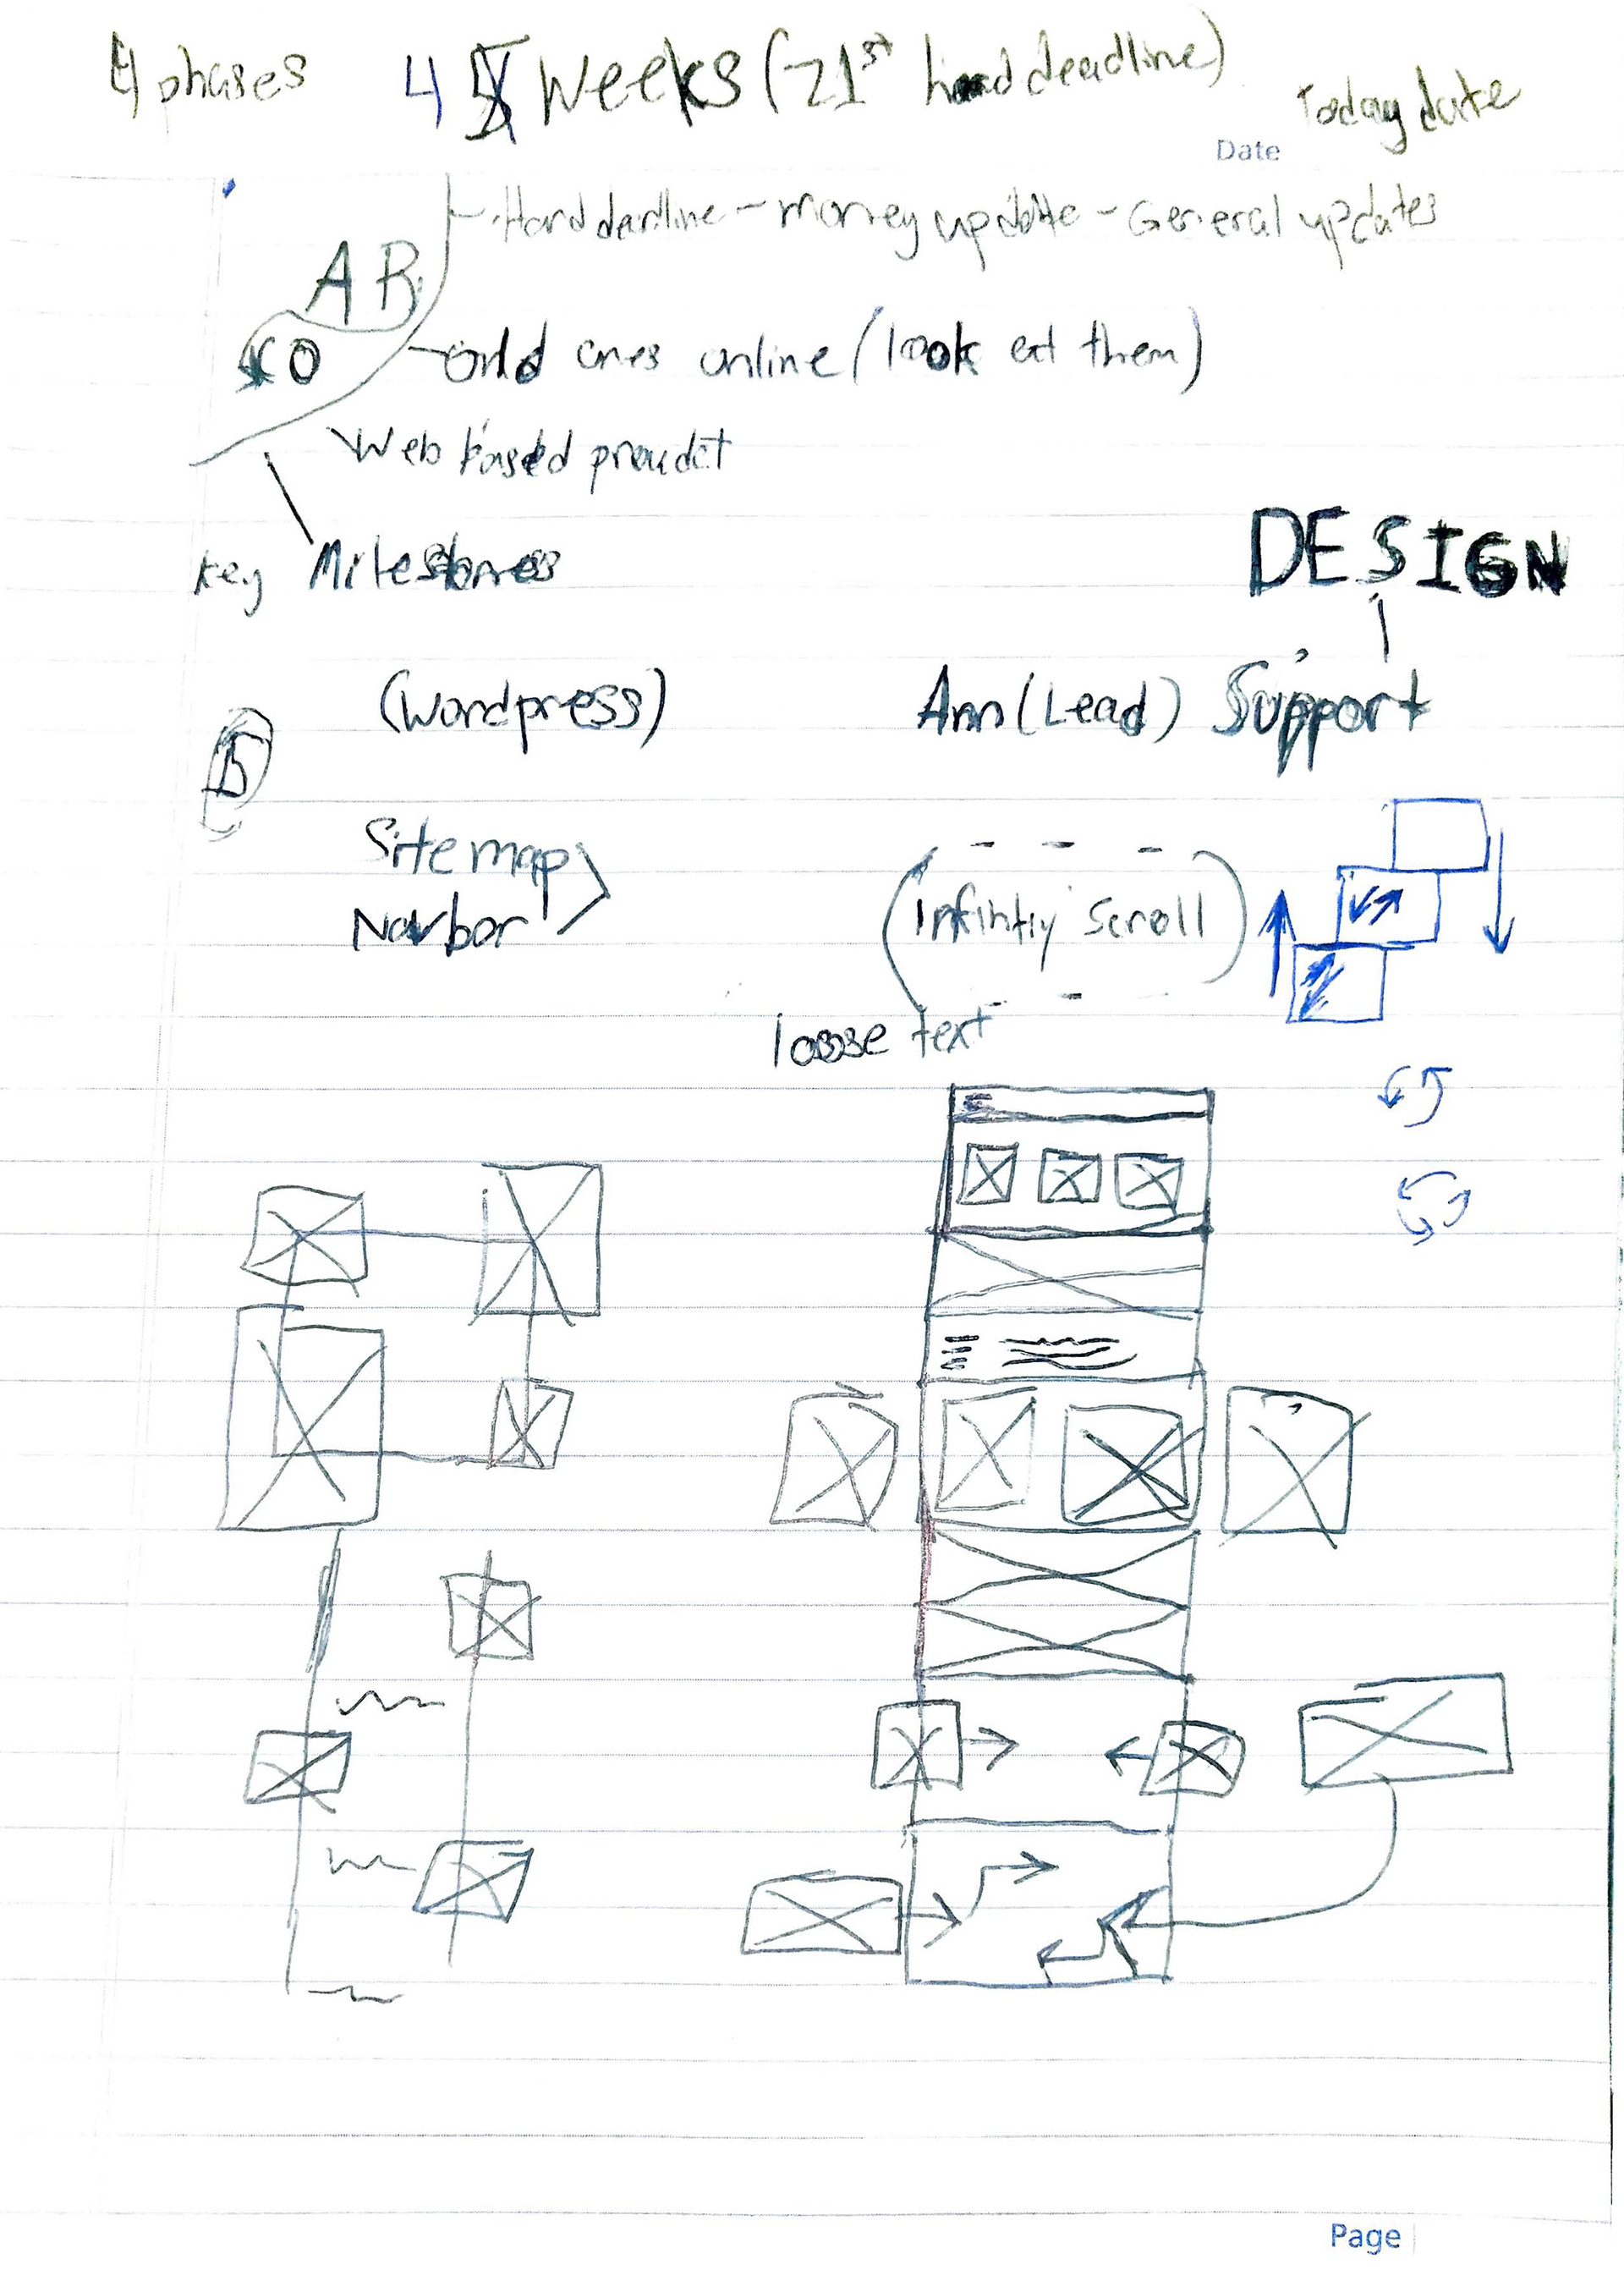 4 phases 4 weeks (21st hard deadline) Today date
Date
- Hard dardline - money update - General updates
AR
CO - orld ones online (look eat them)
Web based proudct
key Milestones
DESIGN
(Wordpress) Ann (Lead) Support
Sitemap
Navbar (infintiy scroll)
loose text
Page